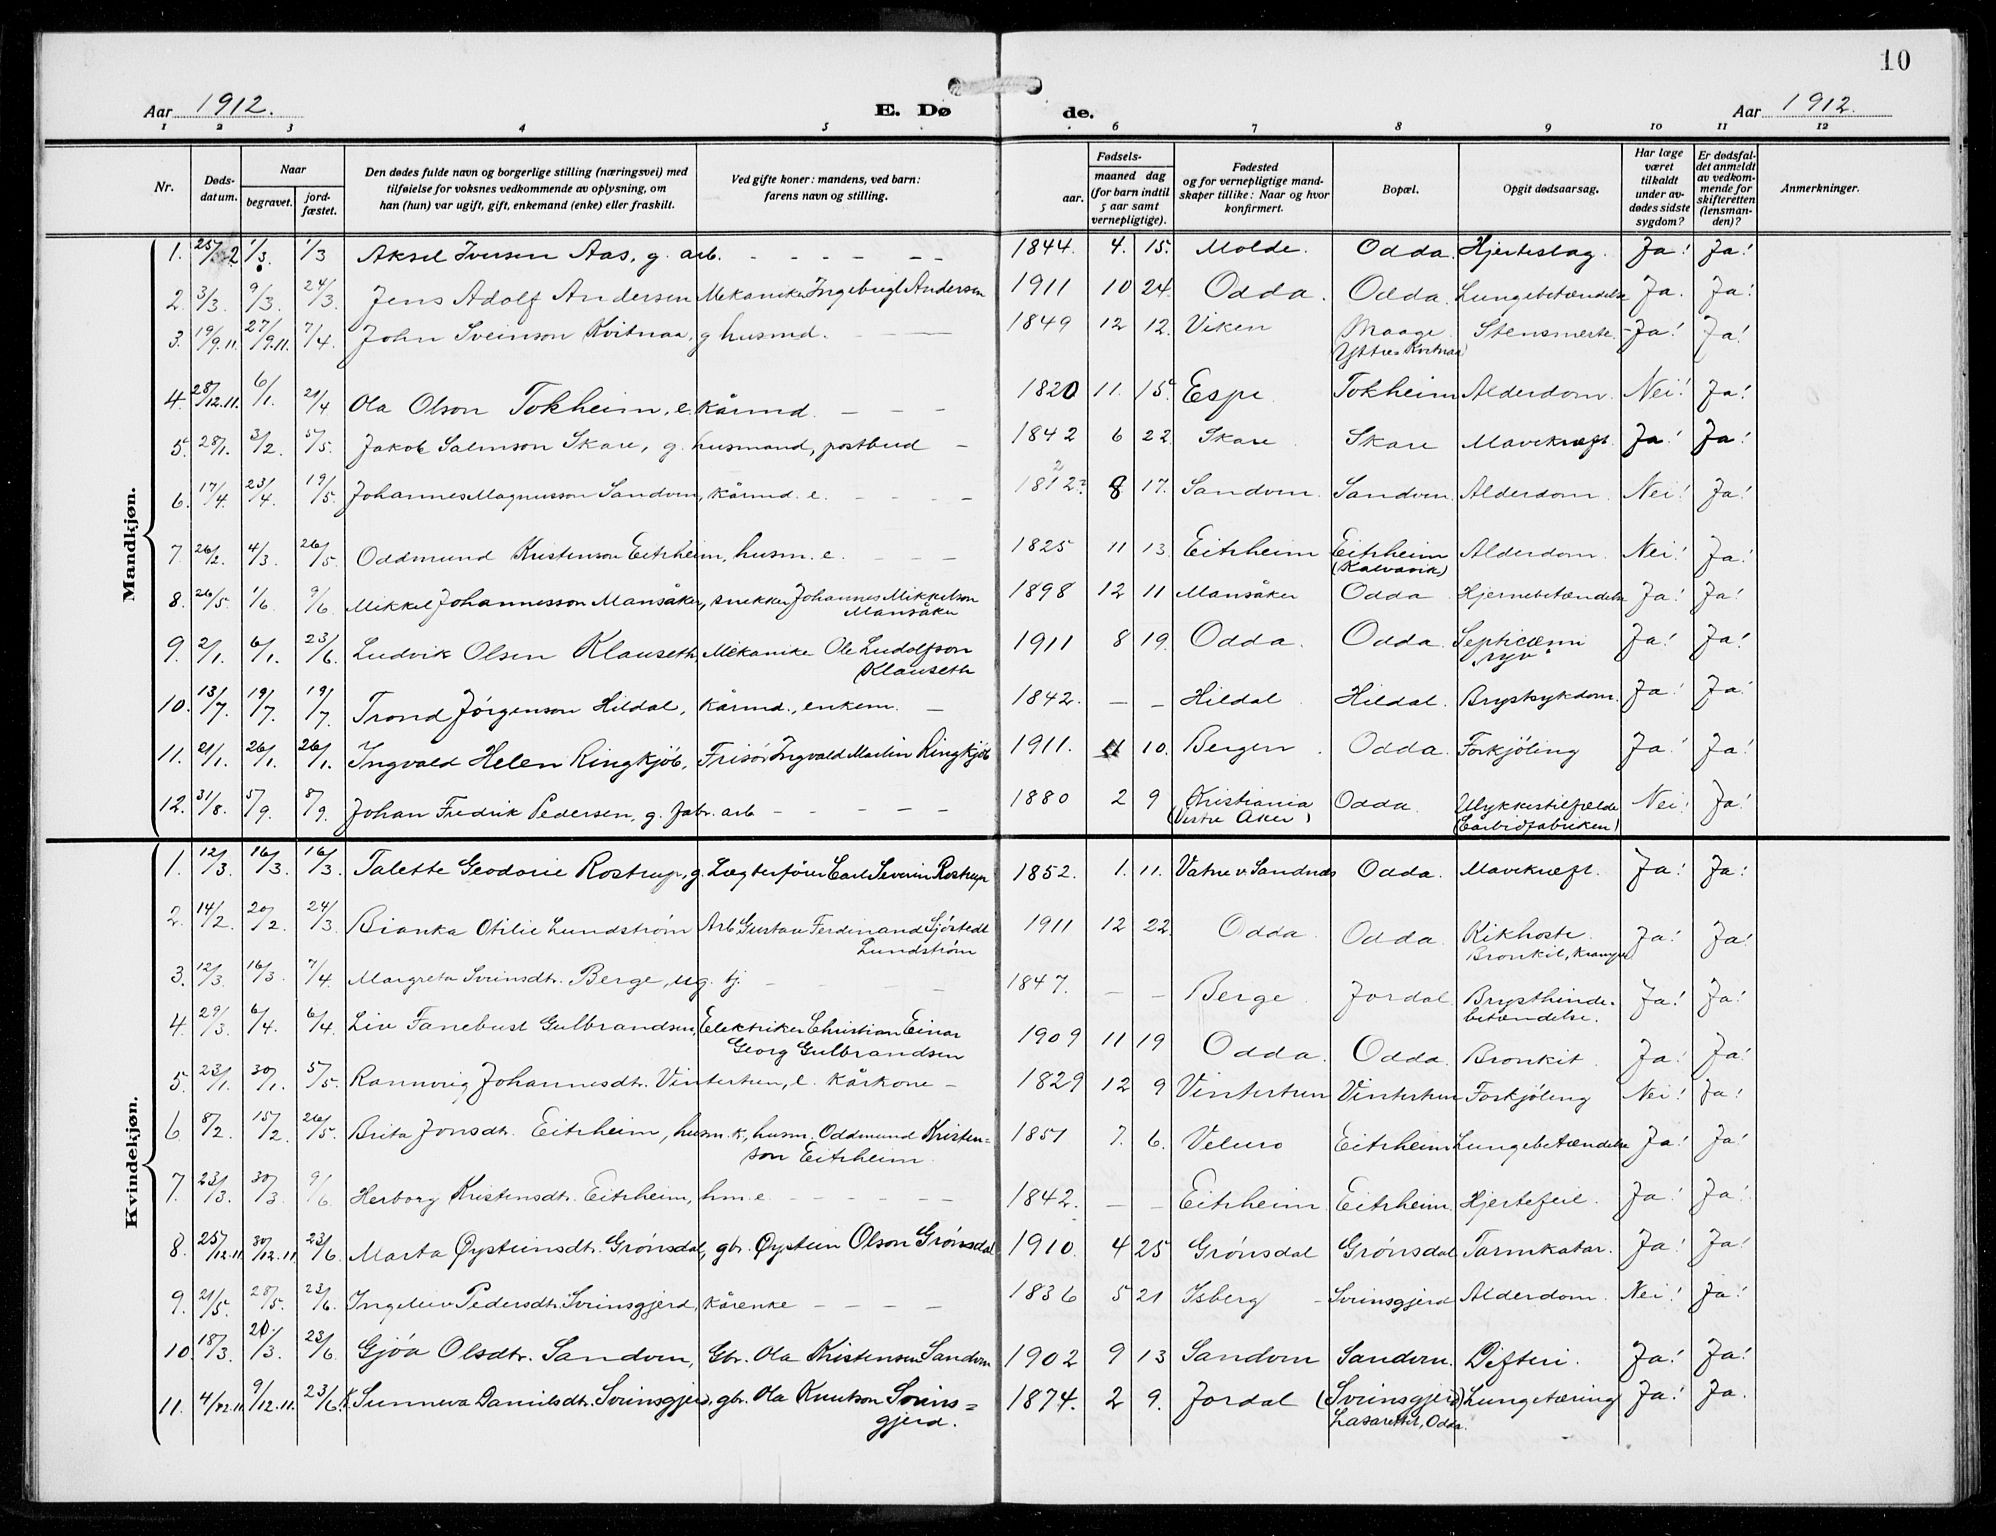 10
Aar 1912. E. Dø de. Aar 1912.
1 2 3 4 5 6 7 8 9 10 11 12
Nr. Døds-datum. Naar begravet. jord-fæstet. Den dødes fulde navn og borgerlige stilling (næringsvei) med tilføielse for voksnes vedkommende av oplysning, om han (hun) var ugift, gift, enkemand (enke) eller fraskilt. Ved gifte koner: mandens, ved barn: farens navn og stilling. Fødsels- aar. maaned dag (for barn indtil 5 aar samt vernepligtige). Fødested og for vernepligtige mandskaper tillike: Naar og hvor konfirmert. Bopæl. Opgit dødsaarsag. Har læge været tilkaldt under avdødes sidste sygdom? Er dødsfaldet anmeldt av vedkommende for skifteretten (lensmanden)? Anmerkninger.
Mandkjøn.
1. 25/2 1/3. 1/3 Aksel Iversen Aas, g. arb. – – – – – – 1844. 4. 15. Molde. Odda. Hjerteslag. Ja! Ja!
2. 3/3. 9/3. 24/3. Jens Adolf Andersen Mekaniker Ingebrigt Andersen 1911 10 24. Odda. Odda. Lungebetændelse Ja. Ja!
3. 19/9.11. 27/9.11. 7/4. John Sveinson Kvitnaa, g husmd. – – 1849 12 12. Viken Maage. Stensmerte. – Ja! Ja!
Yttre Kvitnaa
4. 28/12.11. 6/1. 21/4 Ola Olson Tokheim, e. kårmd. – – – 1820 11. 15. Espe. Tokheim Alderdom. Nei! Ja!
5. 28/1. 3/2. 5/5. Jakob Salmson Skare, g. husmand, postbud – 1842 6 22 Skare. Skare Mavekræft. Ja! Ja!
6. 17/4. 23/4. 19/5. Johannes Magnusson Sandven, kårmd. e. – – – – 1812? 8 17. Sandven. Sandven. Alderdom. Nei! Ja!
7. 26/2. 4/3. 26/5. Oddmund Kristenson Eitrheim, husm. e. – – 1825 11 13. Eitrheim Eitrheim Alderdom. Nei! Ja!
(Kalvavik)
8. 26/5. 1/6. 9/6. Mikkel Johannesson Mansåker, snekker Johannes Mikkelson 1898 12 11 Mansåker Odda Hjernebetændelse Ja! Ja!
Mansåker
9. 2/1. 6/1. 23/6. Ludvik Olsen Klauseth, Mekanike Ole Ludolfson 1911 8 19. Odda. Odda. Septicæmi Ja! Ja!
Klauseth
10. 13/7. 19/7. 19/7. Trond Jørgenson Hildal, kårmd., enkem. – 1842. – – Hildal Hildal. Brystsykdom. Ja! Ja!
11. 21/1. 26/1. 26/1. Ingvald Helen Ringkjøb, Frisør Ingvald Martin Ringkjøb 1911. 10. Bergen. Odda. Forkjøling Ja! Ja!
12. 31/8. 5/9. 8/9. Johan Fredrik Pedersen, g. fabr. arb – – – – – 1880 2 9 Kristiania Odda. Ulykkestilfælde Nei! Ja!
(Vestre Aker) (Carbidfabriken)
Kvindekjøn.
1. 12/3. 16/3. 16/3. Talette Geodorie Rostrup, g. Lægterfører Carl Severin Rostrup 1852. 1. 11. Vatne v. Sandnes Odda. Mavekræft. Ja! Ja!
2. 14/2. 20/2. 24/3. Bianka Otilie Lundstrøm Arb. Gustav Ferdinand Sjöstedt 1911 12 22. Odda. Odda. Kikhoste. Ja! Ja!
Lundstrøm Bronkit, Krampe
3. 12/3. 16/3. 7/4. Margreta Sveinsdtr. Berge, ug. tj. – – – 1847. – – Berge. Jordal. Brysthinde- Ja! Ja!
betændelse.
4. 29/3. 6/4. 6/4. Liv Fanebust Gulbrandsen, Elektriker Christian Einar 1909 11 19 Odda. Odda. Bronkit. Ja! Ja!
Georg Gulbrandsen
5. 23/1. 30/1. 5/5. Rannveig Johannesdtr. Vintertun, e. kårkone – 1829 12 9 Vintertun Vintertun Forkjøling Nei! Ja!
6. 8/2. 15/2. 26/5. Brita Jonsdtr. Eitrheim, husm. k, husm. Oddmund Kristen= 1851 7. 6. Velure Eitrheim Lungebetændelse Ja! Ja!
son Eitrheim.
7. 23/3. 30/3. 9/6. Herborg Kristensdtr. Eitrheim, hm. e. – – – – 1842. – – Eitrheim. Eitrheim. Hjertefeil. Ja! Ja!
8. 25/12.11. 30/12.11. 23/6. Marta Øysteinsdtr. Grønsdal, gbr. Øystein Olson Grønsdal 1910. 4 25 Grønsdal Grønsdal Tarmkatar. Ja! Ja!
9. 21/5. 28/5. 23/6. Ingeleiv Pedersdtr. Sveinsgjerd, kårenke – – – – 1836 5 21 Isberg – Sveinsgjerd Alderdom. Nei! Ja!
10. 18/3. 20/3. 23/6. Gjøa Olsdtr. Sandven, Gbr. Ola Kristensen Sandven 1902 9 13 Sandven Sandven. Difteri. Ja! Ja!
11. 4/12.11. 9/12.11. 23/6. Sunneva Danielsdtr. Sveinsgjerd, gbr. Ola Knutson Sveins= 1874. 2 9. Jordal (Sveinsgjerd) Lungetæring Ja! Ja.
gjerd. Lasarettet, Odda.